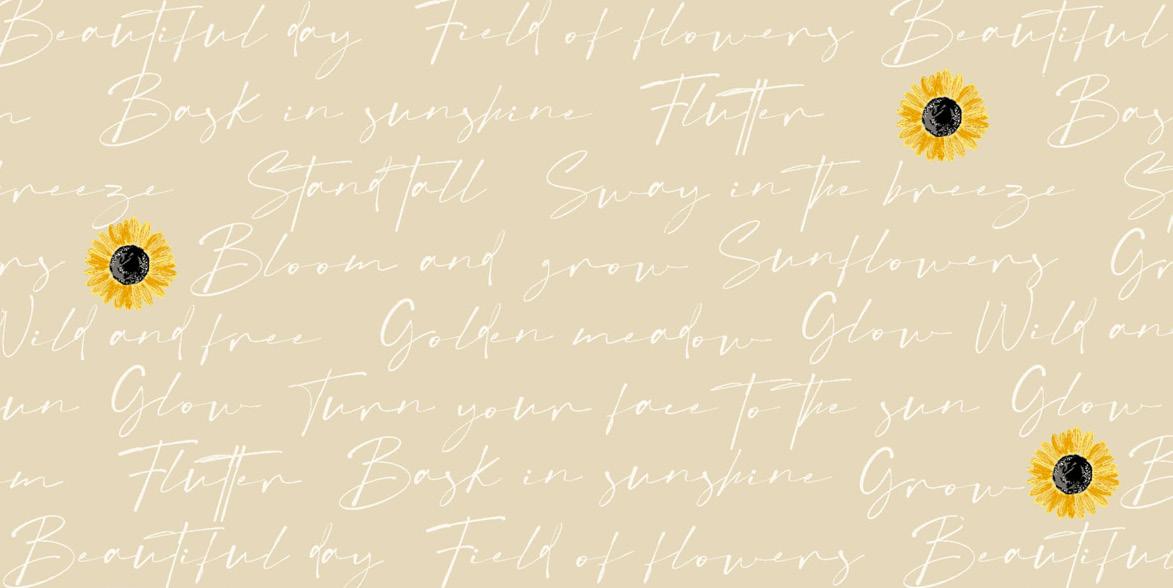 Beautiful day Field of flowers Beautiful
Bask in sunshine Flutter Bas
breeze Stand tall Sway in the breeze S
rs Bloom and grow Sunflowers Gr
Wild and free Golden meadow Glow Wild an
un Glow Turn your face to the sun Glow
m Flutter Bask in sunshine Grow B
Beautiful day Field of flowers Beautiful